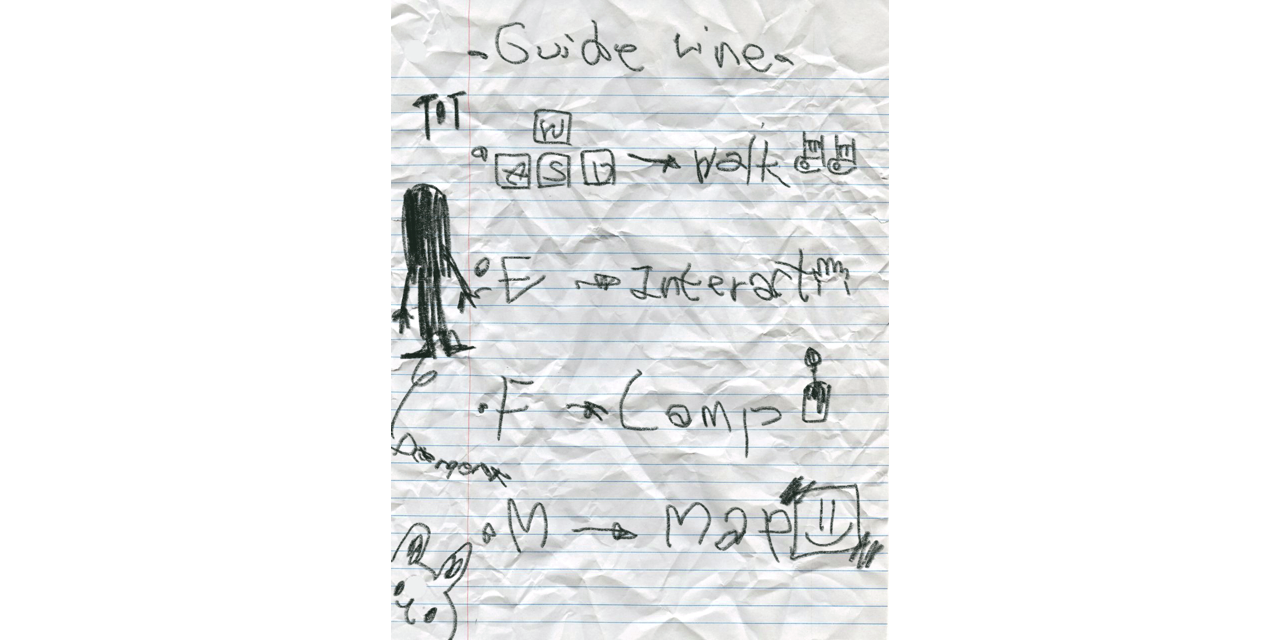 Guide Line
TOT
W
A S D → Walk
E → Interact
F → Lamp
M → Map